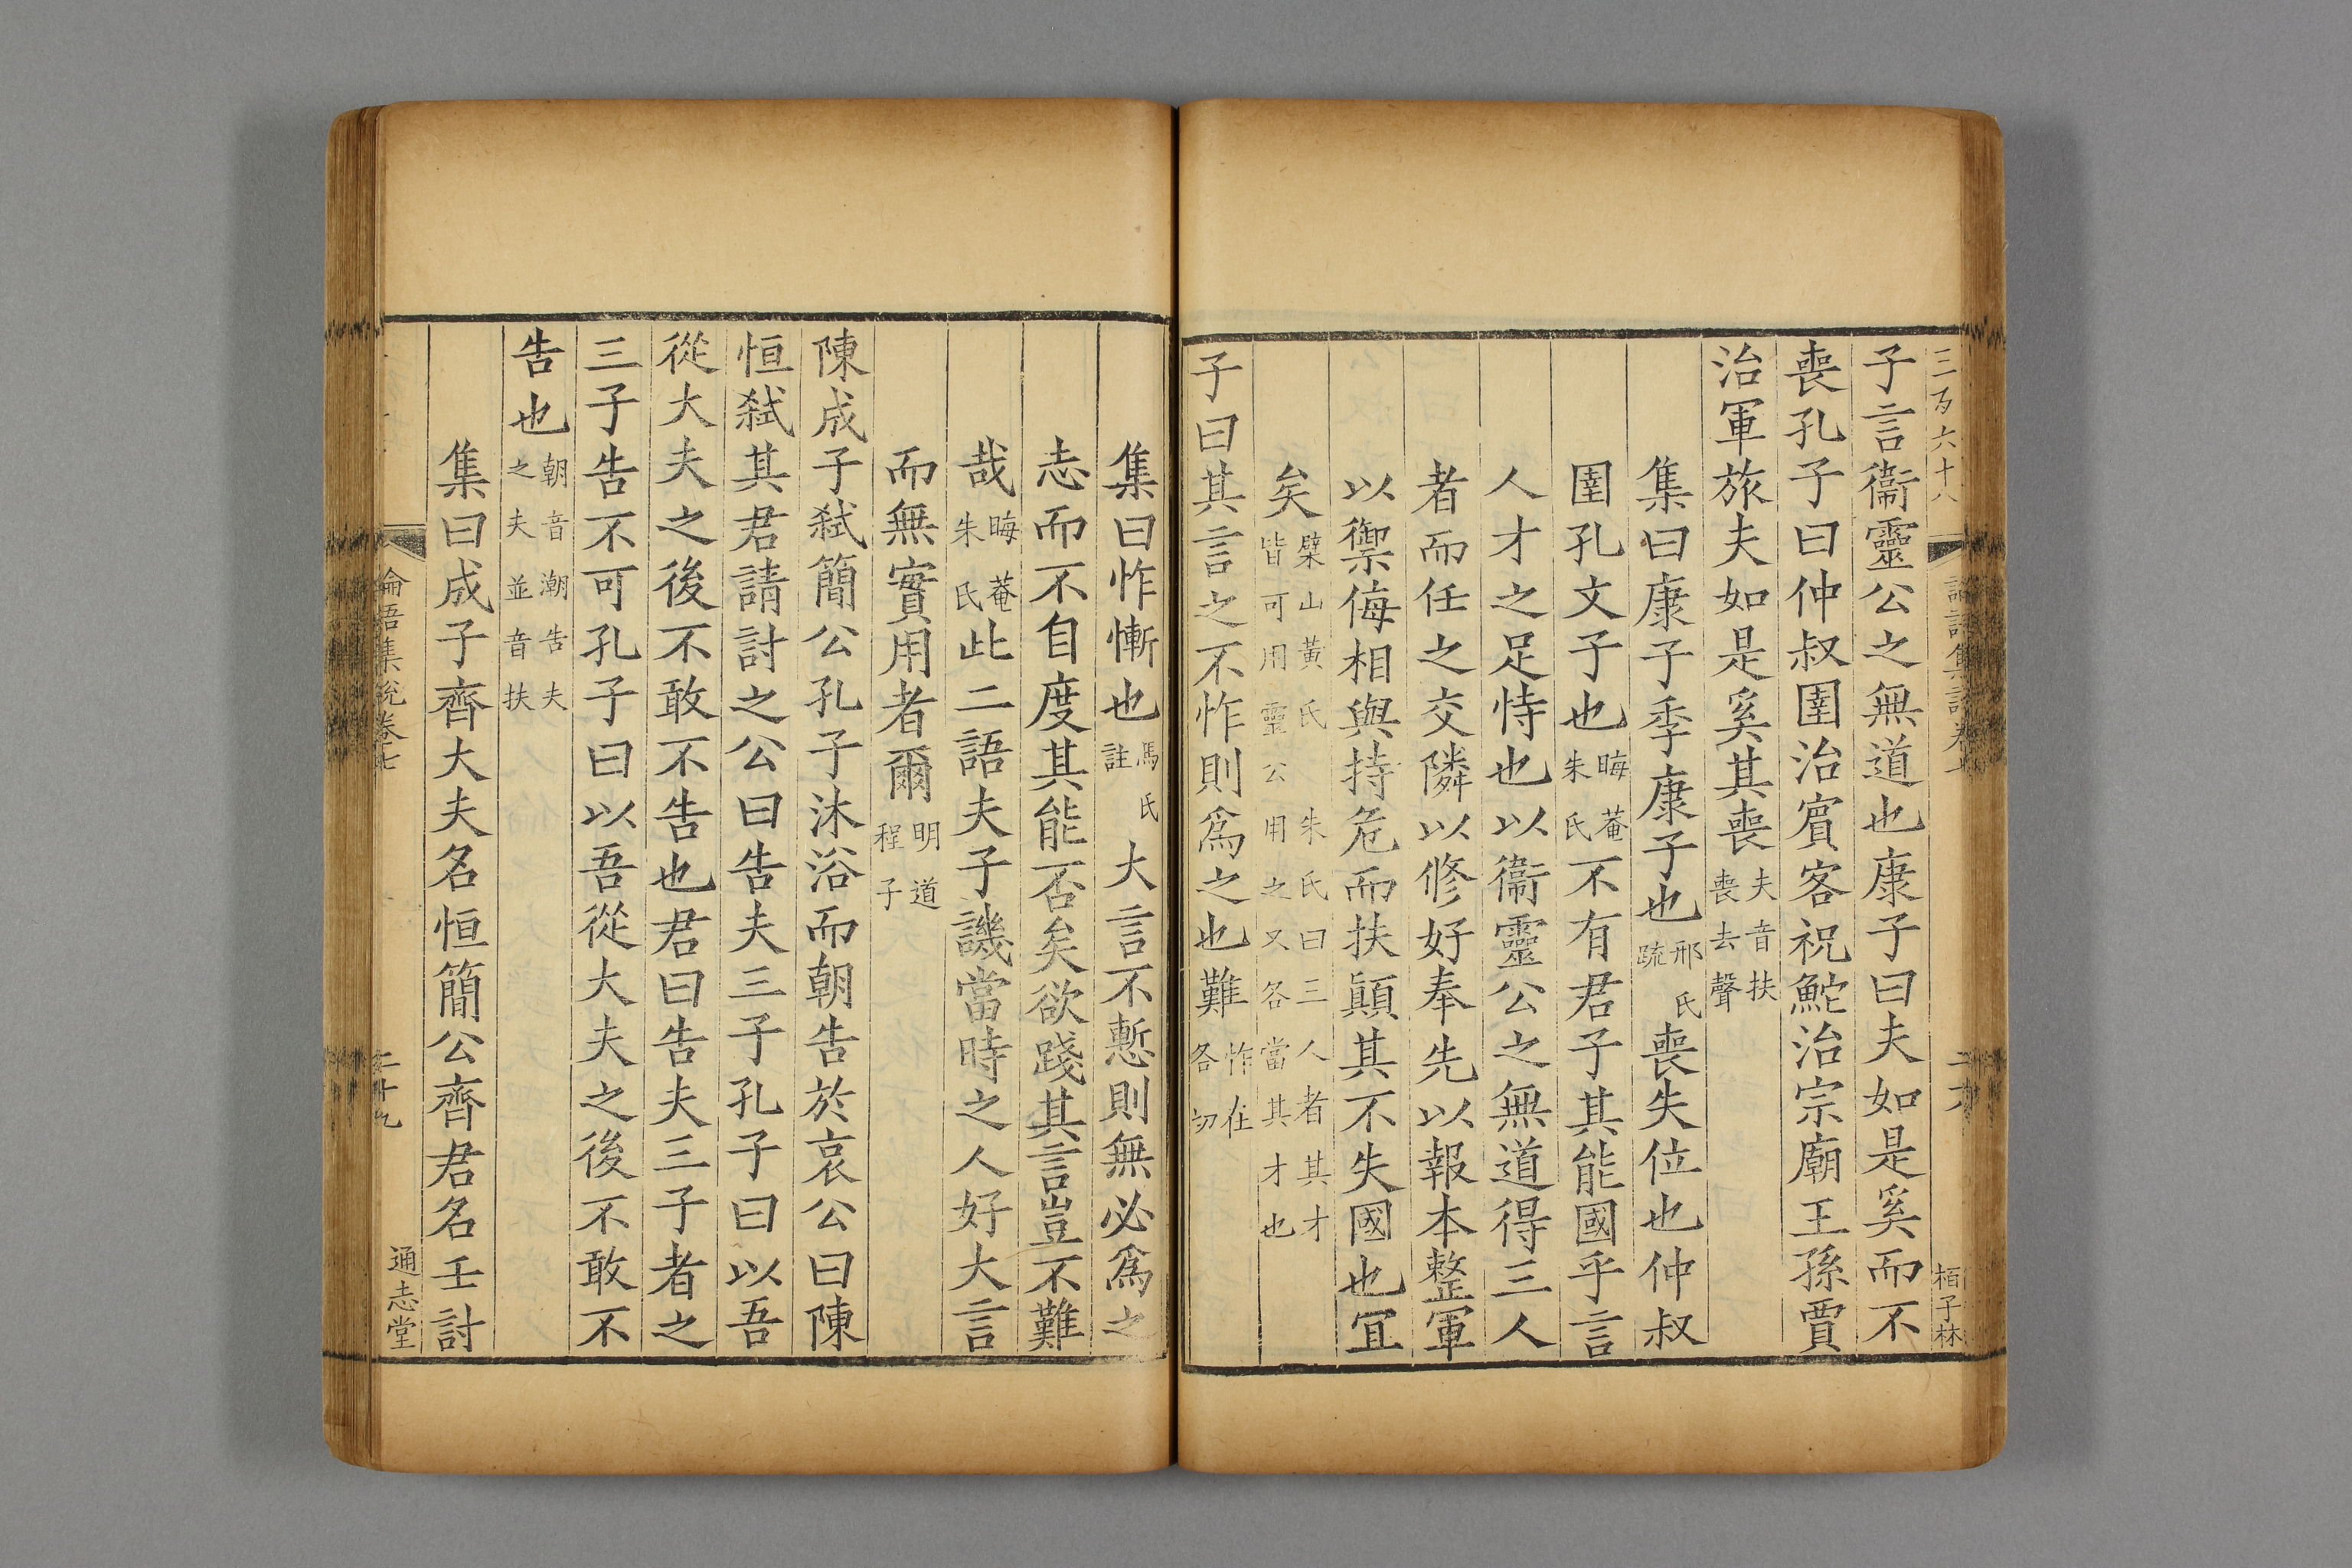 三百六十八
栢子林
子言衞靈公之無道也康子曰夫如是奚而不
喪孔子曰仲叔圉治賔客祝鮀治宗廟王孫賈
治軍旅夫如是奚其喪夫音扶喪去聲
集曰康子季康子也邢氏疏喪失位也仲叔
圉孔文子也晦菴朱氏不有君子其能國乎言
人才之足恃也以衞靈公之無道得三人
者而任之交隣以修好奉先以報本整軍
以禦侮相與持危而扶顚其不失國也冝
矣檗山黃氏朱氏曰三人者其才皆可用靈公用之又各當其才也
子曰其言之不怍則爲之也難怍在各切
集曰怍慚也馬氏註大言不慙則無必爲之
志而不自度其能否矣欲踐其言豈不難
哉晦菴朱氏此二語夫子譏當時之人好大言
而無實用者爾明道程子
陳成子弑簡公孔子沐浴而朝告於哀公曰陳
恒弑其君請討之公曰告夫三子孔子曰以吾
從大夫之後不敢不告也君曰告夫三子者之
三子告不可孔子曰以吾從大夫之後不敢不
告也朝音潮告夫之夫並音扶
集曰成子齊大夫名恒簡公齊君名壬討
論語集說卷七
二十九
通志堂